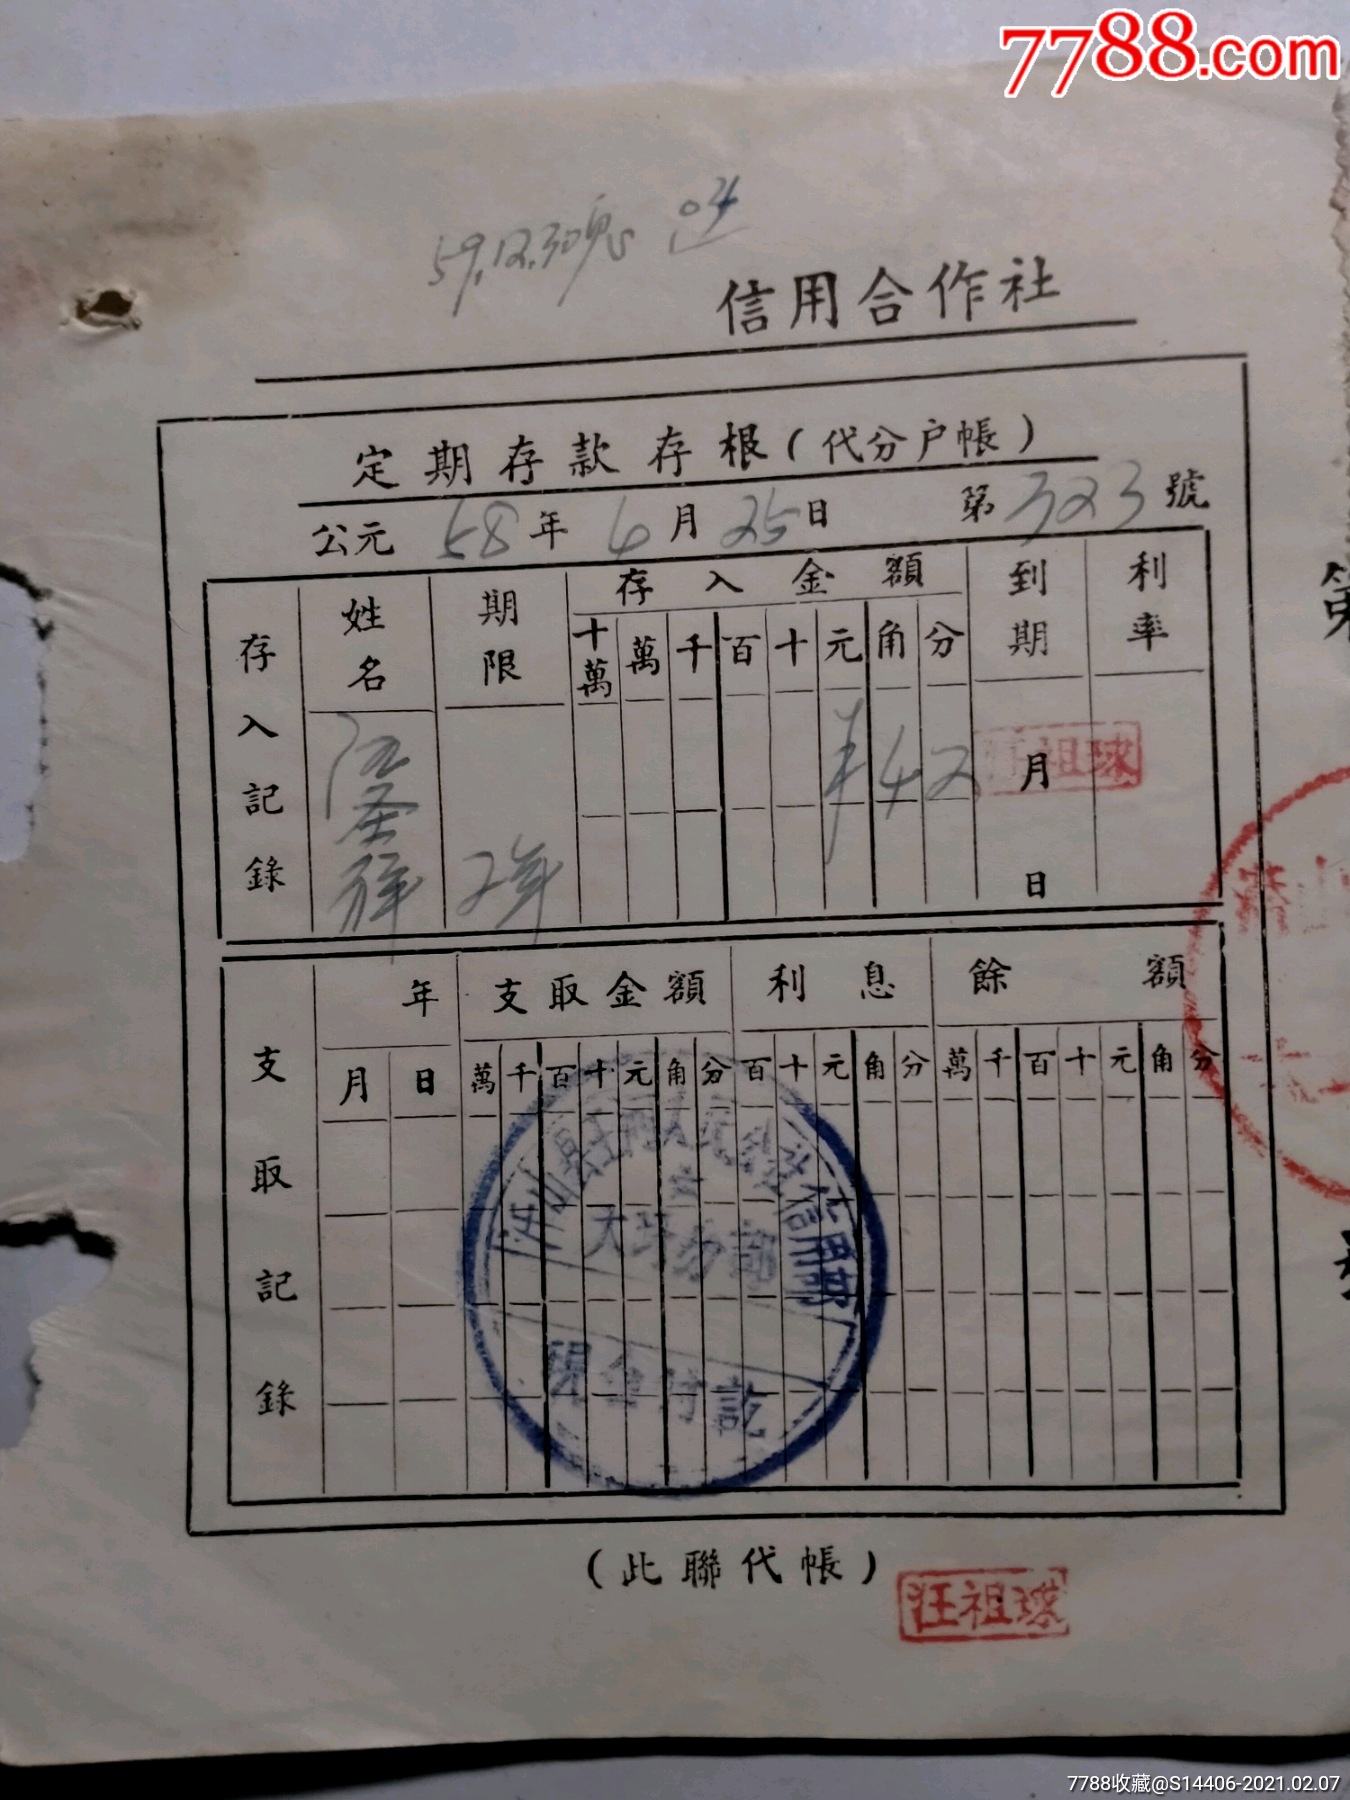 7788.com
59.12.30
信用合作社
定期存款存根(代分户帳)
公元 58 年 6 月 25 日 第 323 號
存入記錄 姓名 期限 存入金額 到期 利率
十萬 萬 千 百 十 元 角 分
2年 ¥42 月 日
汪祖球
支取記錄 年 支取金額 利息 餘額
月 日 萬 千 百 十 元 角 分 百 十 元 角 分 萬 千 百 十 元 角 分
信用部
大巧分部
現金付訖
(此聯代帳)
汪祖球
第
號
7788收藏@S14406-2021.02.07